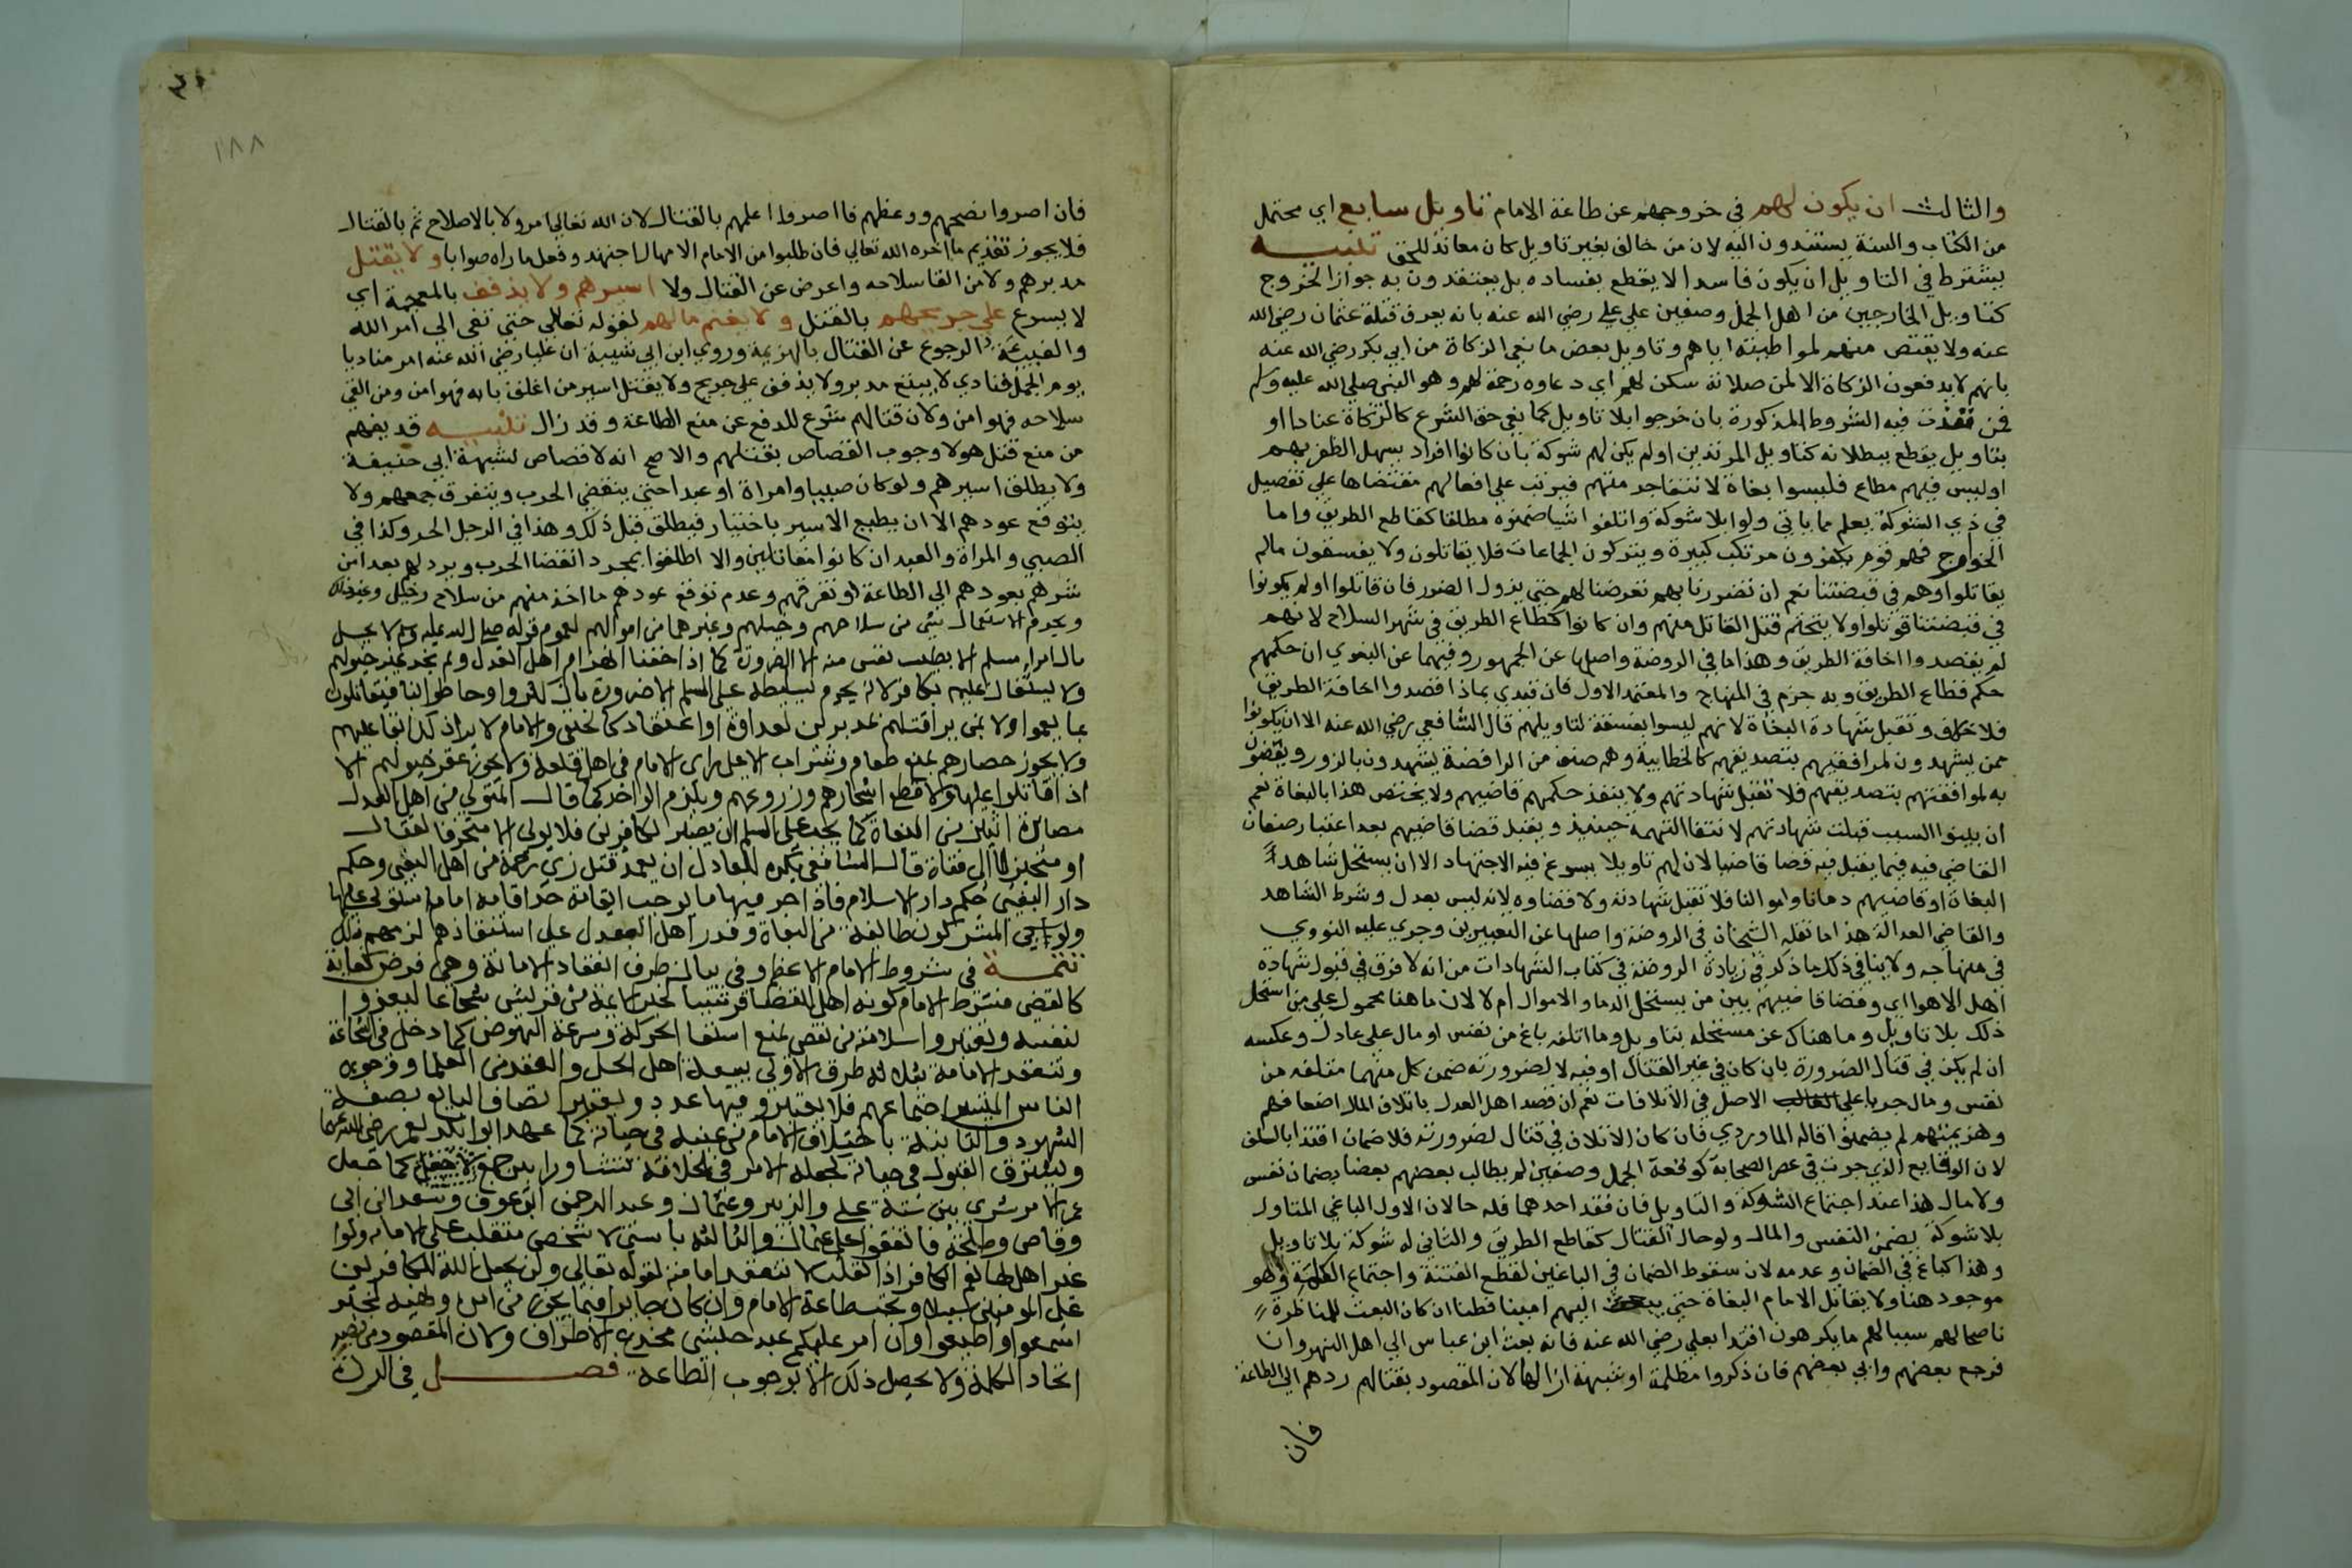 والثالث ان يكون لهم في خروجهم عن طاعة الامام تاويل سايغ اي محتمل
من الكتاب والسنة يستندون اليه لان من خالف بغير تاويل كان معاندا للحق تنبيه
يشترط في التاويل ان يكون فاسدا لا يقطع بفساده بل يعتقدون به جواز الخروج
كتاويل الخارجين من اهل الجمل وصفين علي علي رضي الله عنه بانه يعرف قتلة عثمان رضي الله
عنه ولا يقتص منهم لمواطيته اياهم وتاويل بعض مانعي الزكاة من ابي بكر رضي الله عنه
بانهم لا يدفعون الزكاة الا لمن صلاته سكن لهم اي دعاوه رحمة لهم وهو النبي صلي الله عليه وسلم
فمن فقدت فيه الشروط المذكورة بان خرجوا بلا تاويل كمانعي حق الشرع كالزكاة عنادا او
بتاويل يقطع ببطلانه كتاويل المرتدين او لم يكن لهم شوكة بان كانوا افراد يسهل الظفر بهم
او ليس فيهم مطاع فليسوا بغاة لانتفا حرمتهم فيرتب علي افعالهم مقتضاها علي تفصيل
في ذي الشوكة يعلم مما ياتي ولو بلا شوكة واتلفوا شيا ضمنوه مطلقا كقاطع الطريق واما
الخوارج فهم قوم يكفرون مرتكب كبيرة ويتركون الجماعات فلا يقاتلون ولا يفسقون مالم
يقاتلوا وهم في قبضتنا نعم ان تضررنا بهم تعرضنا لهم حتي يزول الضرر فان قاتلوا او لم يكونوا
في قبضتنا قوتلوا ولا يتحتم قتل القاتل منهم وان كانوا كقطاع الطريق في شهر السلاح لانهم
لم يقصدوا اخافة الطريق وهذا ما في الروضة واصلها عن الجمهور وفيهما عن البغوي ان حكمهم
حكم قطاع الطريق وبه جزم في المنهاج والمعتمد الاول فان قيدي بماذا قصدوا اخافة الطريق
فلا خلاف وتقبل شهادة البغاة لانهم ليسوا بفسقة لتاويلهم قال الشافعي رضي الله عنه الا ان يكونوا
ممن يشهدون لموافقيهم بتصديقهم كالخطابية وهم صنف من الرافضة يشهدون بالزور ويقضون
به لموافقتهم بتصديقهم فلا تقبل شهادتهم ولا ينفذ حكمهم قاضيهم ولا يختص هذا بالبغاة نعم
ان بينوا السبب قبلت شهادتهم لانتفا التهمة حينيذ ويقبل قضا قاضيهم بعد اعتبار صفات
القاضي فيه فيما يقبل فيه قضا قاضينا لان لهم تاويلا يسوغ فيه الاجتهاد الا ان يستحل شاهد
البغاة او قاضيهم دمانا واموالنا فلا تقبل شهادته ولا قضاوه لانه ليس بعدل وشرط الشاهد
والقاضي العدالة هذا ما نقله الشيخان في الروضة واصلها عن المعتبرين وجري عليه النووي
في منهاجه ولا ينافي ذلك ما ذكر في زيادة الروضة في كتاب الشهادات من انه لا فرق في قبول شهادة
اهل الاهوا اي وقضا قاضيهم بين من يستحل الدما والاموال ام لا لان ما هنا محمول علي من استحل
ذلك بلا تاويل وما هناك عن مستحله بتاويل وما اتلفه باغ من نفس او مال علي عادل وعكسه
ان لم يكن في قتال الضرورة بان كان في غير القتال او فيه لا لضرورته ضمن كل منهما متلفه من
نفس ومال جريا علي الاصل في الاتلافات نعم ان قصد اهل العدل باتلاف المال اضعافهم
وهزيمتهم لم يضمنوا قاله الماوردي فان كان الاتلاف في قتال لضرورته فلا ضمان اقتدا بالسلف
لان الوقايع التي جرت في عصر الصحابة كوقعة الجمل وصفين لم يطالب بعضهم بعضا بضمان نفس
ولا مال هذا عند اجتماع الشوكة والتاويل فان فقد احدهما فله حالان الاول الباغي المتاول
بلا شوكة يضمن النفس والمال ولو حال القتال كقاطع الطريق والثاني له شوكة بلا تاويل
وهذا كباغ في الضمان وعدمه لان سقوط الضمان في الباغين لقطع الفتنة واجتماع الكلمة وهو
موجود هنا ولا يقاتل الامام البغاة حتي يبعث اليهم امينا فطنا ان كان البعث للمناظرة
ناصحا لهم سببا لهم ما يكرهون اقتدا بعلي رضي الله عنه فانه بعث ابن عباس الي اهل النهروان
فرجع بعضهم وابي بعضهم فان ذكروا مظلمة او شبهة ازالها لان المقصود بقتالهم ردهم الي الطاعة
فان
١٨٨
فان اصروا نصحهم ووعظهم فان اصروا اعلمهم بالقتال لان الله تعالي امر ولا بالاصلاح ثم بالقتال
فلا يجوز تقديم ما اخره الله تعالي فان طلبوا من الامام الامهال اجتهد وفعل ما راه صوابا ولا يقتل
مدبرهم ولا من القا سلاحه واعرض عن القتال ولا اسيرهم ولا يذفف بالمعجمة اي
لا يسرع علي جريحهم بالقتل ولا يغنم مالهم لقوله تعالي حتي تفي الي امر الله
والفيية الرجوع عن القتال بالهزيمة وروي ابن ابي شيبة ان عليا رضي الله عنه امر مناديا
يوم الجمل فنادي لا يتبع مدبر ولا يذفف علي جريح ولا يقتل اسير من اغلق بابه فهو امن ومن القي
سلاحه فهو امن ولان قتالهم شرع للدفع عن منع الطاعة وقد زال تنبيه قد يفهم
من منع قتل هولا وجوب القصاص بقتلهم والاصح انه لا قصاص لشبهة ابي حنيفة
ولا يطلق اسيرهم ولو كان صبيا وامراة او عبدا حتي ينقضي الحرب ويتفرق جمعهم ولا
يتوقع عودهم الا ان يطيع الاسير باختيار فيطلق قبل ذلك وهذا في الرجل الحر وكذا في
الصبي والمراة والعبد ان كانوا مقاتلين والا اطلقوا بمجرد انقضا الحرب ويرد لهم بعد امن
شرهم بعودهم الي الطاعة او تفرقهم وعدم توقع عودهم ما اخذ منهم من سلاح وخيل وغير ذلك
ويحرم استعمال شي من سلاحهم وخيلهم وغيرهما من اموالهم لعموم قوله صلي الله عليه وسلم لا يحل
مال امرء مسلم الا بطيب نفس منه الا لضرورة كما اذا خفنا انهزام اهل العدل ولم نجد غير خيولهم
ولا يستعان عليهم بكافر لانه يحرم تسليطه علي المسلم الا ضرورة بان كثروا واحاطوا بنا فيقاتلون
بما يعم اولا بمن يري قتلهم مدبرين لعداوة او اعتقاد كالحنفي والامام لا يري ذلك ابقا عليهم
ولا يجوز حصارهم بمنع طعام وشراب الا علي راي الامام في اهل قلعة ولا يجوز عقر خيولهم الا
اذا قاتلوا عليها ولا قطع اشجارهم وزروعهم ويلزم الواحد كما قال المتولي من اهل العدل
مصابرة اثنين من البغاة كما يجب علي المسلم ان يصبر لكافرين فلا يولي الا متحرفا لقتال
او متحيزا الي فئة قال الشافعي يكره للعادل ان يعمد قتل ذي رحمه من اهل البغي وحكم
دار البغي حكم دار الاسلام فاذا جري فيها ما يوجب اقامة حد اقامه امام استولي عليها
ولو سبي المشركون طائفة من البغاة وقدر اهل العدل علي استنقاذهم لزمهم ذلك
تتمة في شروط الامام الاعظم وفي بيان طرق انعقاد الامامة وهي فرض كفاية
كالقضي فشرط الامام كونه اهلا للقضا قرشيا لخبر الائمة من قريش شجاعا ليغزوا
لنفسه وتعتبر سلامته من نقص يمنع استيفا الحركة وسرعة النهوض كما دخل في الشجاعة
وتنعقد الامامة بثلاثة طرق الاولي ببيعة اهل الحل والعقد من العلما ووجوه
الناس المتيسر اجتماعهم فلا يعتبر فيها عدد ويعتبر اتصاف المبايع بصفة
الشهود والثانية باختلاف الامام من عينه في حياته كما عهد ابو بكر لعمر رضي الله عنهما
ويشترط القبول في حياته كجعله الامر في الخلافة تشاورا بين جمع كما جعل
عمر الامر شوري بين ستة علي والزبير وعثمان وعبد الرحمن ابن عوف وسعد ابن ابي
وقاص وطلحة فاتفقوا علي عثمان والثالثة باستيلا شخص متغلب علي الامامة ولو
غير اهل لها نعم الكافر اذا تغلب لا تنعقد امامته لقوله تعالي ولن يجعل الله للكافرين
علي المومنين سبيلا وتجب طاعة الامام وان كان جايرا فيما يجوز من امره ونهيه لخبر
اسمعوا واطيعوا وان امر عليكم عبد حبشي مجدع الاطراف ولان المقصود من نصبه
اتحاد الكلمة ولا يحصل ذلك الا بوجوب الطاعة فصل في الردة